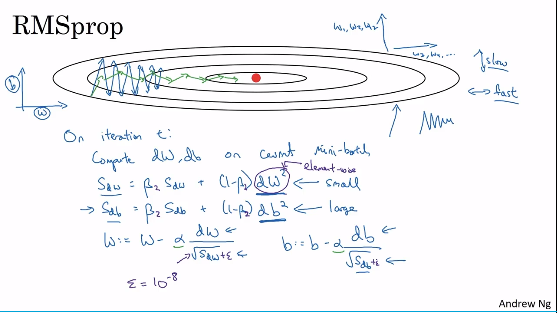 RMSprop
w₁, w₂, w₂
w₃, w₄, ...
↑ slow
↔ fast
b
w
On iteration t:
Compute dW, db on current mini-batch
element-wise
S_dw = β₂ S_dw + (1-β₂) dW² ← small
→ S_db = β₂ S_db + (1-β₂) db² ← large
W := W - α dW/√S_dw+ε ←
b := b - α db/√S_db+ε ←
ε = 10⁻⁸
Andrew Ng